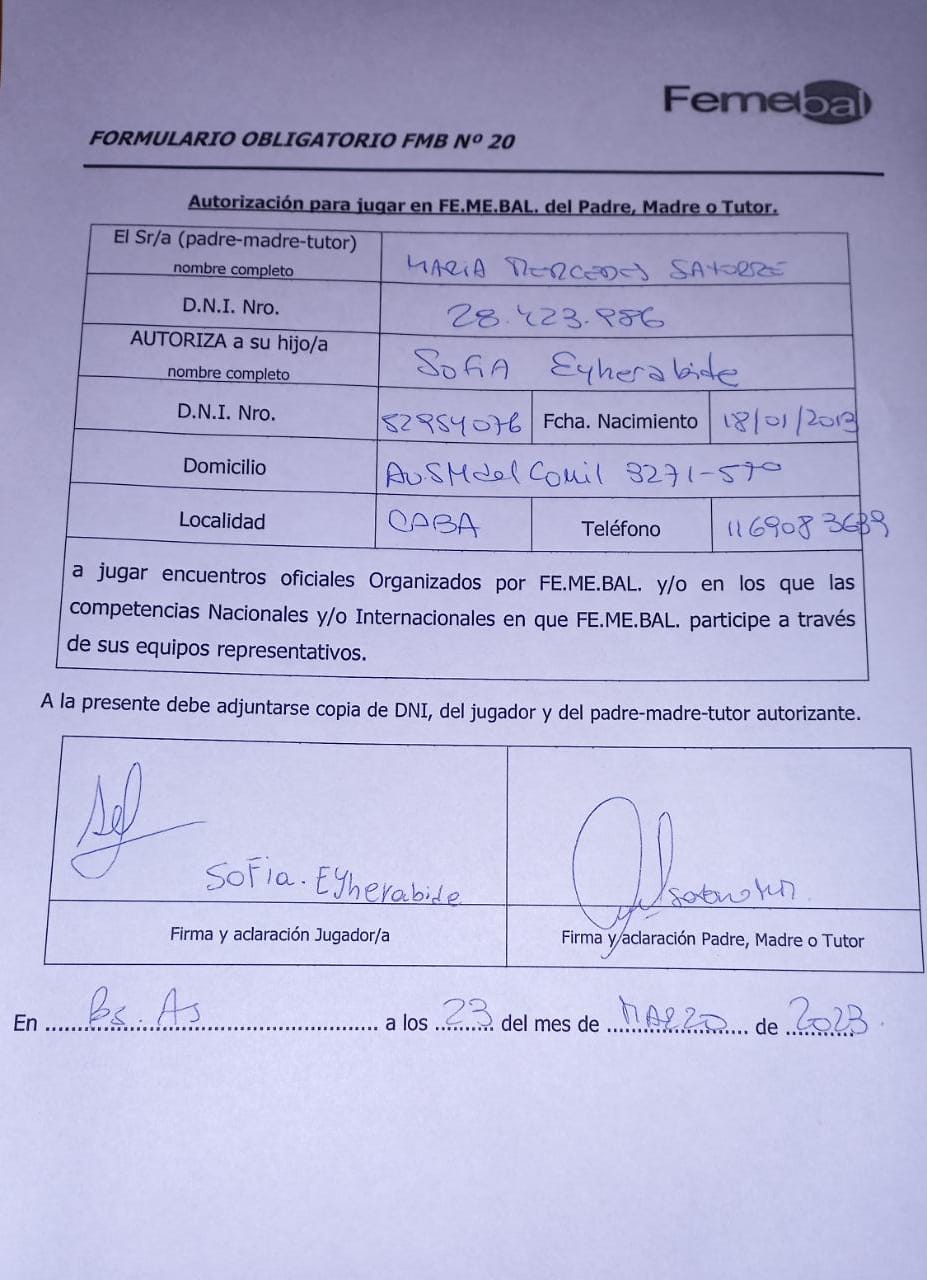 Femebal
FORMULARIO OBLIGATORIO FMB Nº 20
Autorización para jugar en FE.ME.BAL. del Padre, Madre o Tutor.
El Sr/a (padre-madre-tutor)
nombre completo
MARIA MERCEDES SATORRE
D.N.I. Nro.
28.423.986
AUTORIZA a su hijo/a
nombre completo
SOFIA Eyherabide
D.N.I. Nro.
52954076
Fcha. Nacimiento
18/01/2013
Domicilio
Av. SM del Conil 3271-5º
Localidad
CABA
Teléfono
1169083689
a jugar encuentros oficiales Organizados por FE.ME.BAL. y/o en los que las
competencias Nacionales y/o Internacionales en que FE.ME.BAL. participe a través
de sus equipos representativos.
A la presente debe adjuntarse copia de DNI, del jugador y del padre-madre-tutor autorizante.
SoFia. EYherabide
Firma y aclaración Jugador/a
Firma y aclaración Padre, Madre o Tutor
En Bs. As a los 23 del mes de MARZO de 2023.